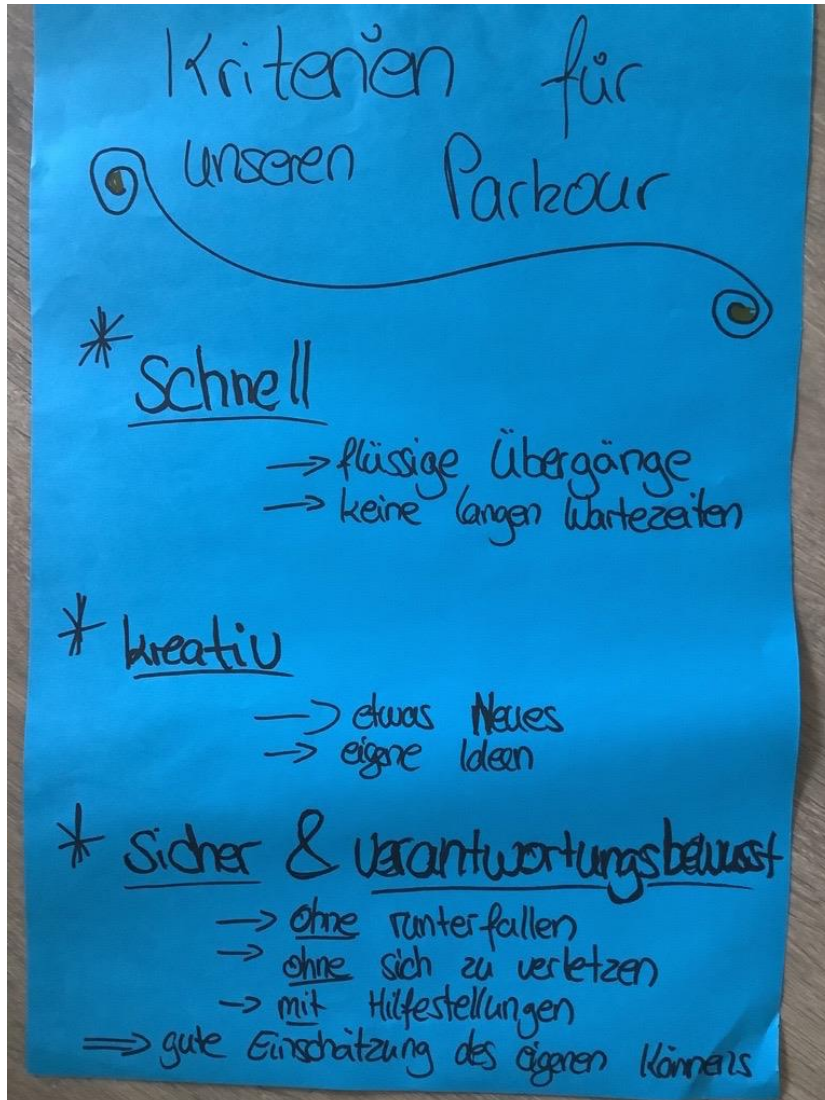 Kriterien für
unseren Parkour
* Schnell
→ flüssige Übergänge
→ keine langen Wartezeiten
* kreativ
→ etwas Neues
→ eigene Ideen
* sicher & verantwortungsbewusst
→ ohne runterfallen
→ ohne sich zu verletzen
→ mit Hilfestellungen
⇒ gute Einschätzung des eigenen Könnens